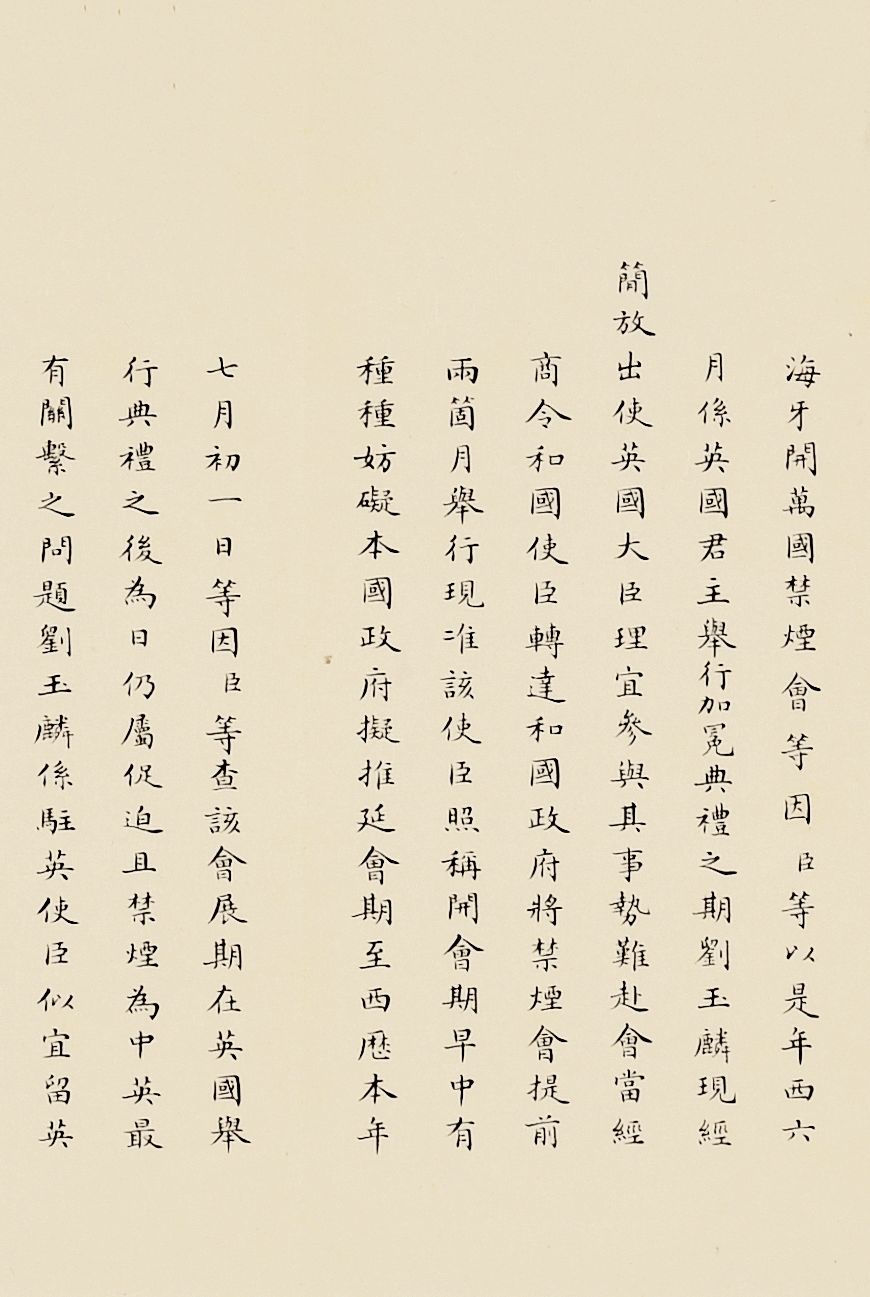 海牙開萬國禁煙會等因臣等以是年西六
月係英國君主舉行加冕典禮之期劉玉麟現經
簡放出使英國大臣理宜參與其事勢難赴會當經
商令和國使臣轉達和國政府將禁煙會提前
兩箇月舉行現准該使臣照稱開會期早中有
種種妨礙本國政府擬推延會期至西歷本年
七月初一日等因臣等查該會展期在英國舉
行典禮之後為日仍屬促迫且禁煙為中英最
有關繫之問題劉玉麟係駐英使臣似宜留英